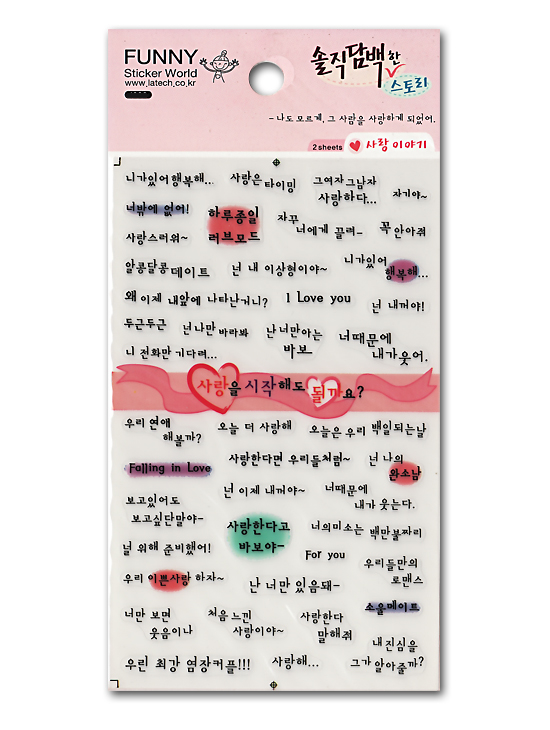 FUNNY
Sticker World
www.latech.co.kr
솔직담백한
스토리
- 나도 모르게, 그 사람을 사랑하게 되었어.
2sheets 사랑 이야기
니가있어행복해...
사랑은 타이밍
그여자그남자
사랑하다...
자기야~
너밖에 없어!
하루종일
러브모드
자꾸
너에게 끌려-
꼭 안아줘
사랑스러워~
알콩달콩데이트
넌 내 이상형이야~
니가있어
행복해...
왜이제 내앞에 나타난거니?
I Love you
넌 내꺼야!
두근두근
넌나만바라봐
난너만아는
바보
너때문에
내가웃어.
니 전화만 기다려...
사랑을시작해도 될까요?
우리 연애
해볼까?
오늘 더 사랑해
오늘은우리 백일되는날
Falling in Love
사랑한다면 우리들처럼~
넌 나의
완소남
보고있어도
보고싶단말야-
넌 이제 내꺼야~
너때문에
내가 웃는다.
사랑한다고
바보야-
너의미소는 백만불짜리
널 위해 준비했어!
For you
우리들만의
로맨스
우리 이쁜사랑 하자~
난 너만 있음돼-
소울메이트
너만 보면
웃음이나
처음느낀
사랑이야~
사랑한다
말해줘
내진심을
그가알아줄까?
우린 최강 염장커플!!!
사랑해...